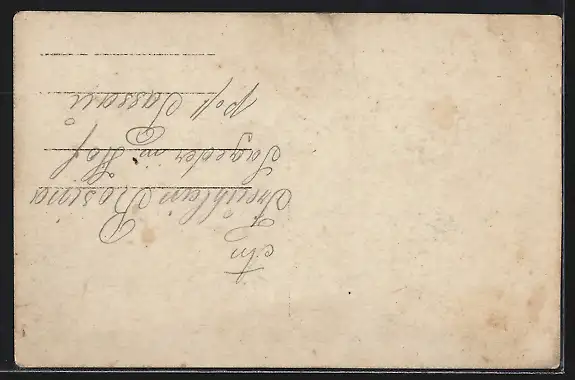 An
Freihlein Rosina
Sageder in Hof
Post Passau